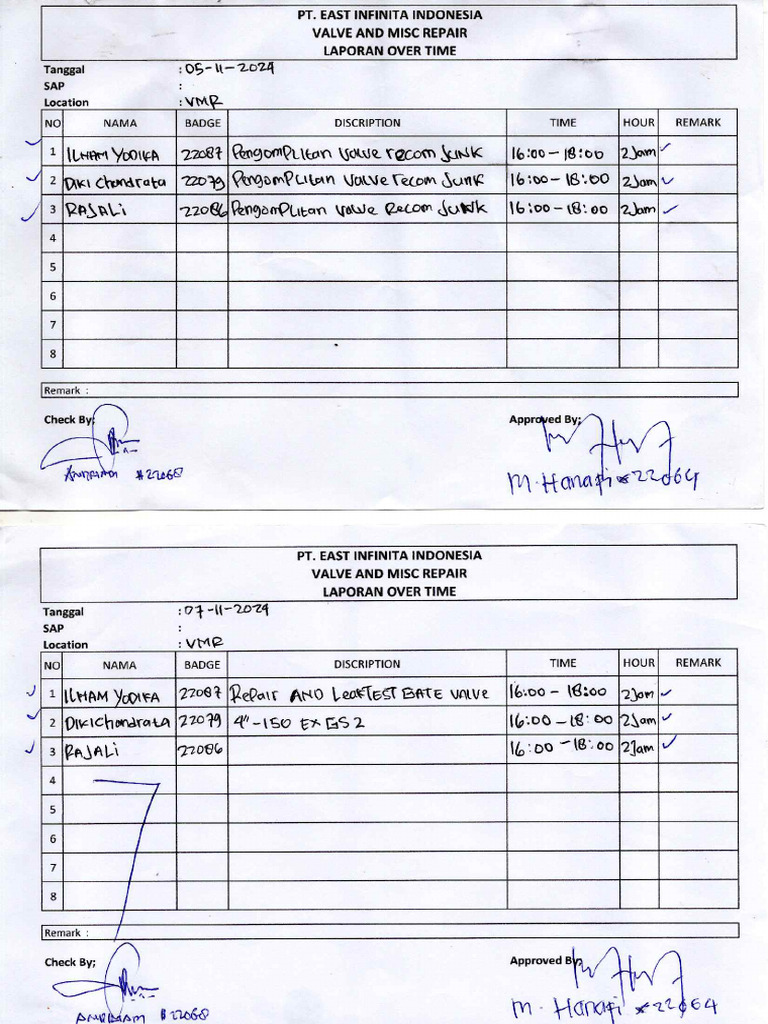 PT. EAST INFINITA INDONESIA
VALVE AND MISC REPAIR
LAPORAN OVER TIME
Tanggal : 05-11-2024
SAP :
Location : VMR
NO NAMA BADGE DISCRIPTION TIME HOUR REMARK
1 ILHAM YODIKA 22087 Pengomplitan valve recom Junk 16:00-18:00 2 Jam ✓
2 Diki Chandrata 22079 Pengomplitan valve recom Junk 16:00-18:00 2 Jam ✓
3 RAJALi 22086 Pengomplitan valve Recom Junk 16:00-18:00 2 Jam ✓
4
5
6
7
8
Remark :
Check By; Approved By;
#22068 M. Hanafi 22064
PT. EAST INFINITA INDONESIA
VALVE AND MISC REPAIR
LAPORAN OVER TIME
Tanggal : 07-11-2024
SAP :
Location : VMR
NO NAMA BADGE DISCRIPTION TIME HOUR REMARK
1 ILHAM YODIKA 22087 Repair AND LeakTEST GATE VALVE 16:00-18:00 2 Jam ✓
2 Diki Chandrata 22079 4"-150 EX GS 2 16:00-18:00 2 Jam ✓
3 RAJALi 22086 16:00-18:00 2 Jam ✓
4
5
6
7
8
Remark :
Check By; Approved By;
22068 M. Hanafi 22064